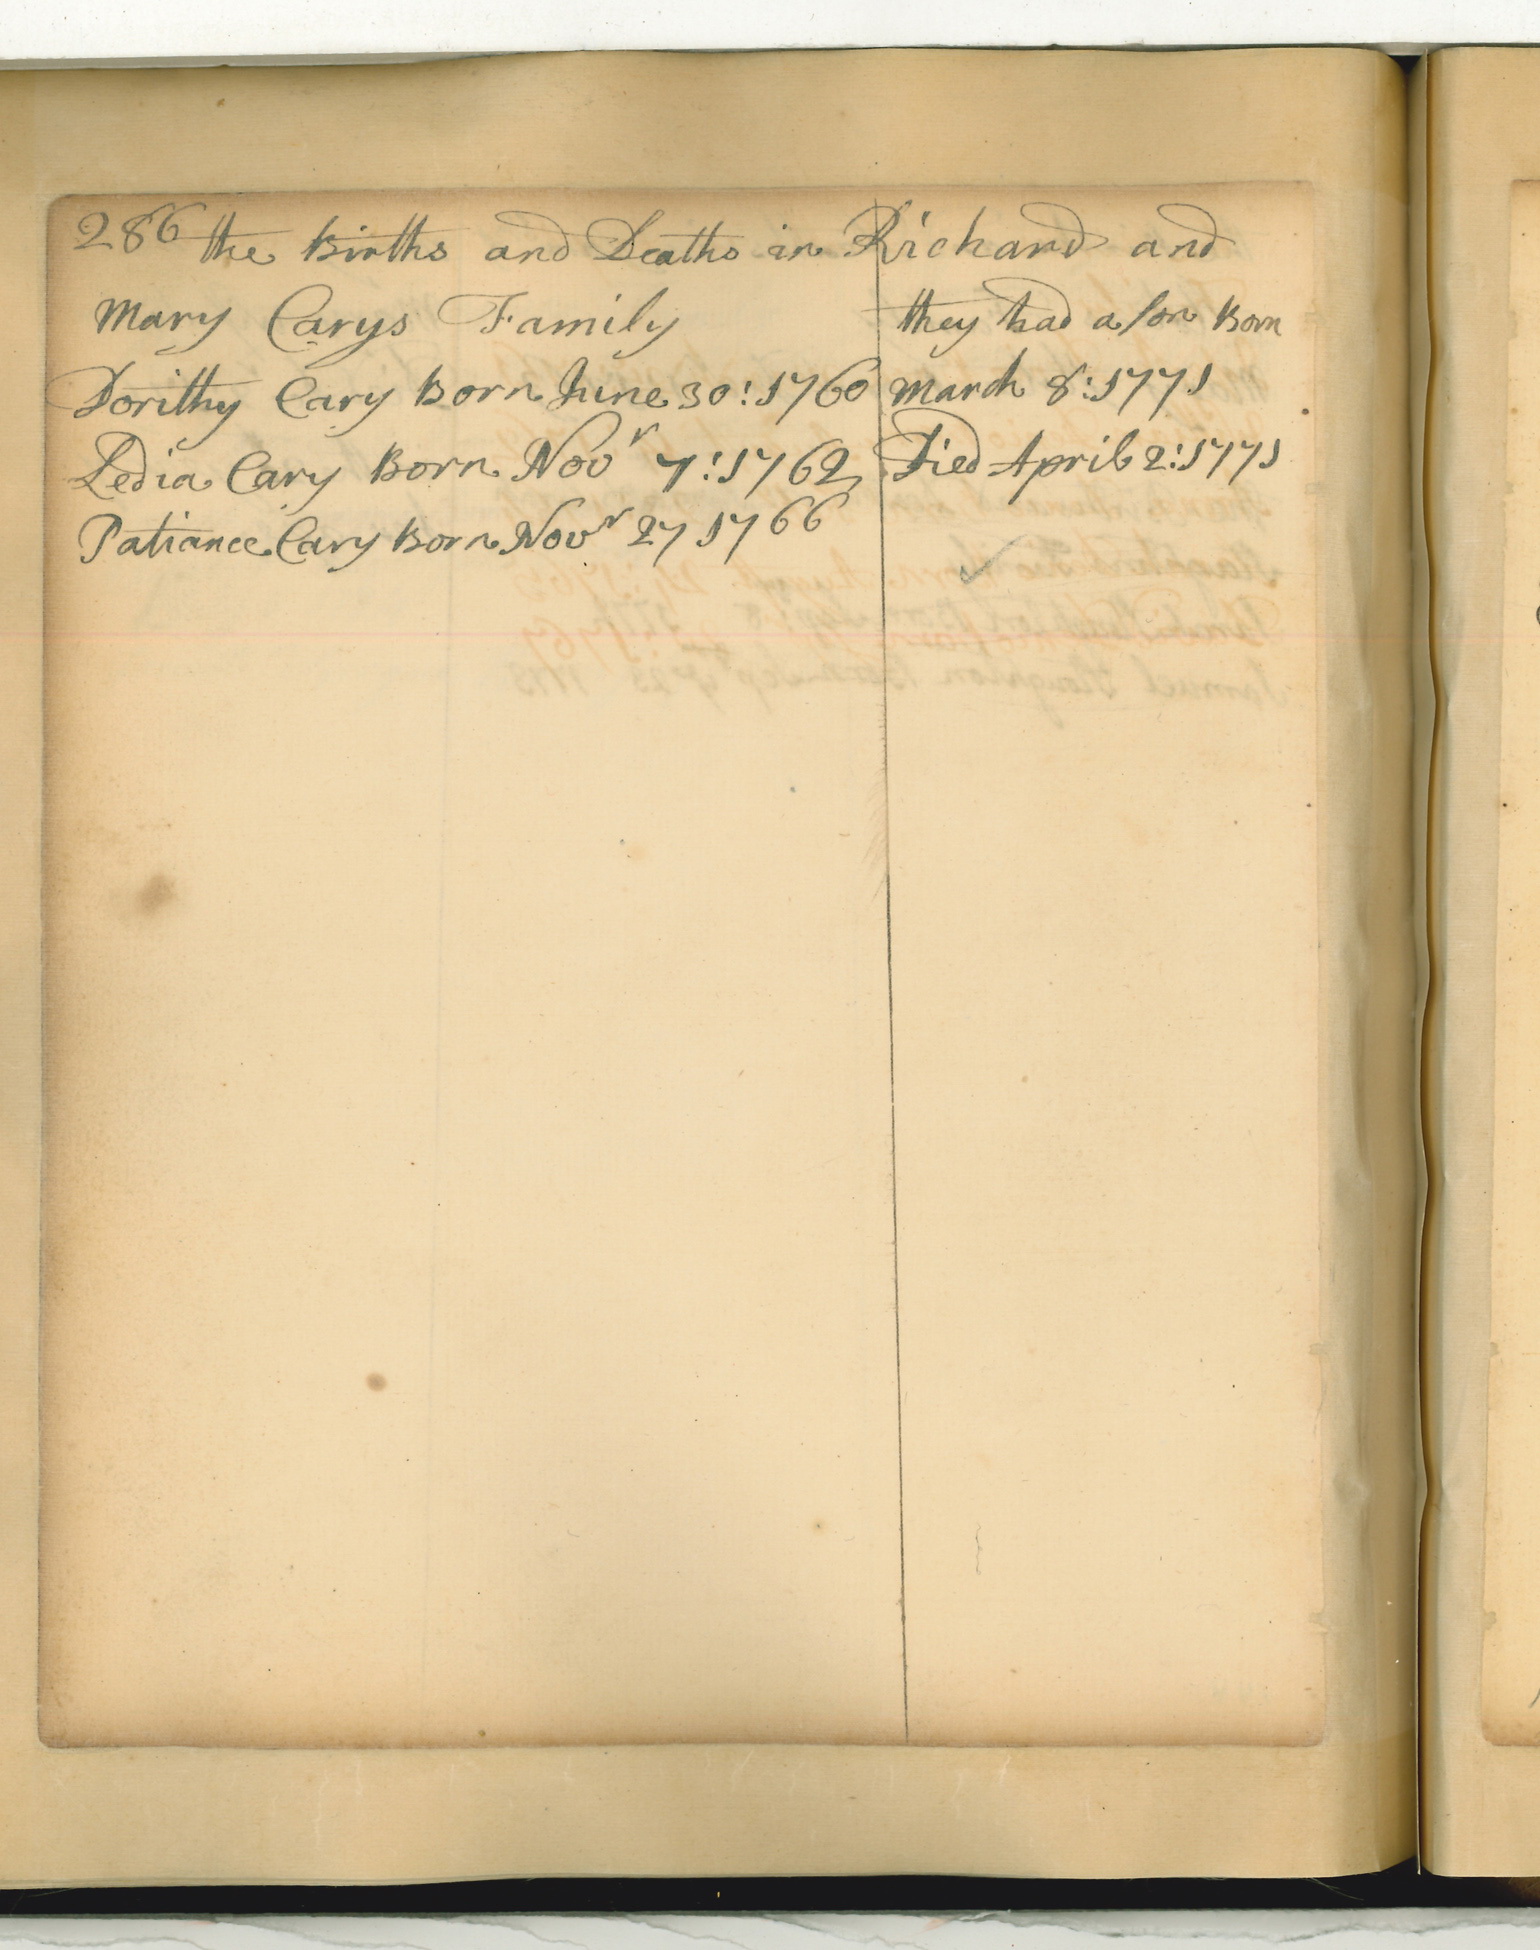 286 the Births and Deaths in Richard and
Mary Carys Family
Dorithy Cary Born June 30: 1760
Ledia Cary Born Novr 7: 1762
Patiance Cary Born Novr 27 1766
they had a son Born
March 8: 1771
Died April 2: 1771